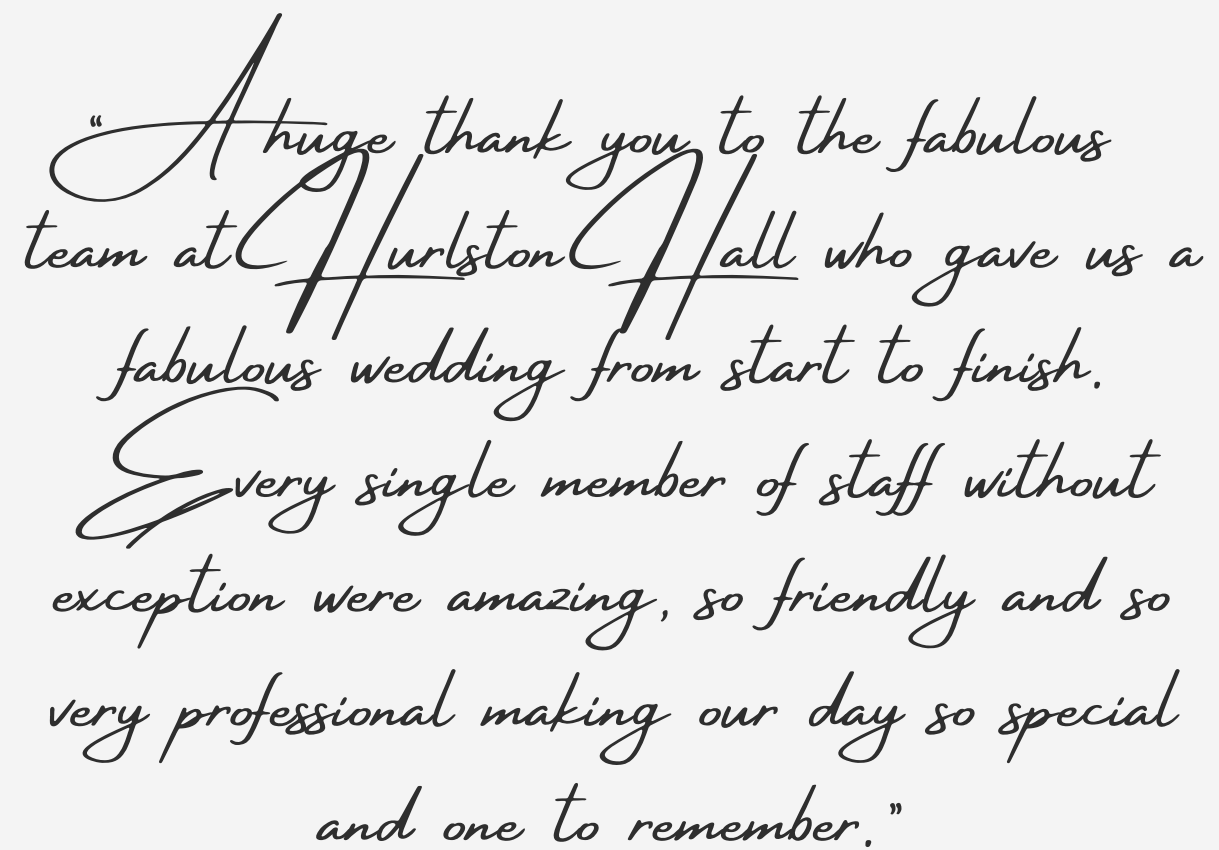 “A huge thank you to the fabulous
team at Hurlston Hall who gave us a
fabulous wedding from start to finish.
Every single member of staff without
exception were amazing, so friendly and so
very professional making our day so special
and one to remember.”